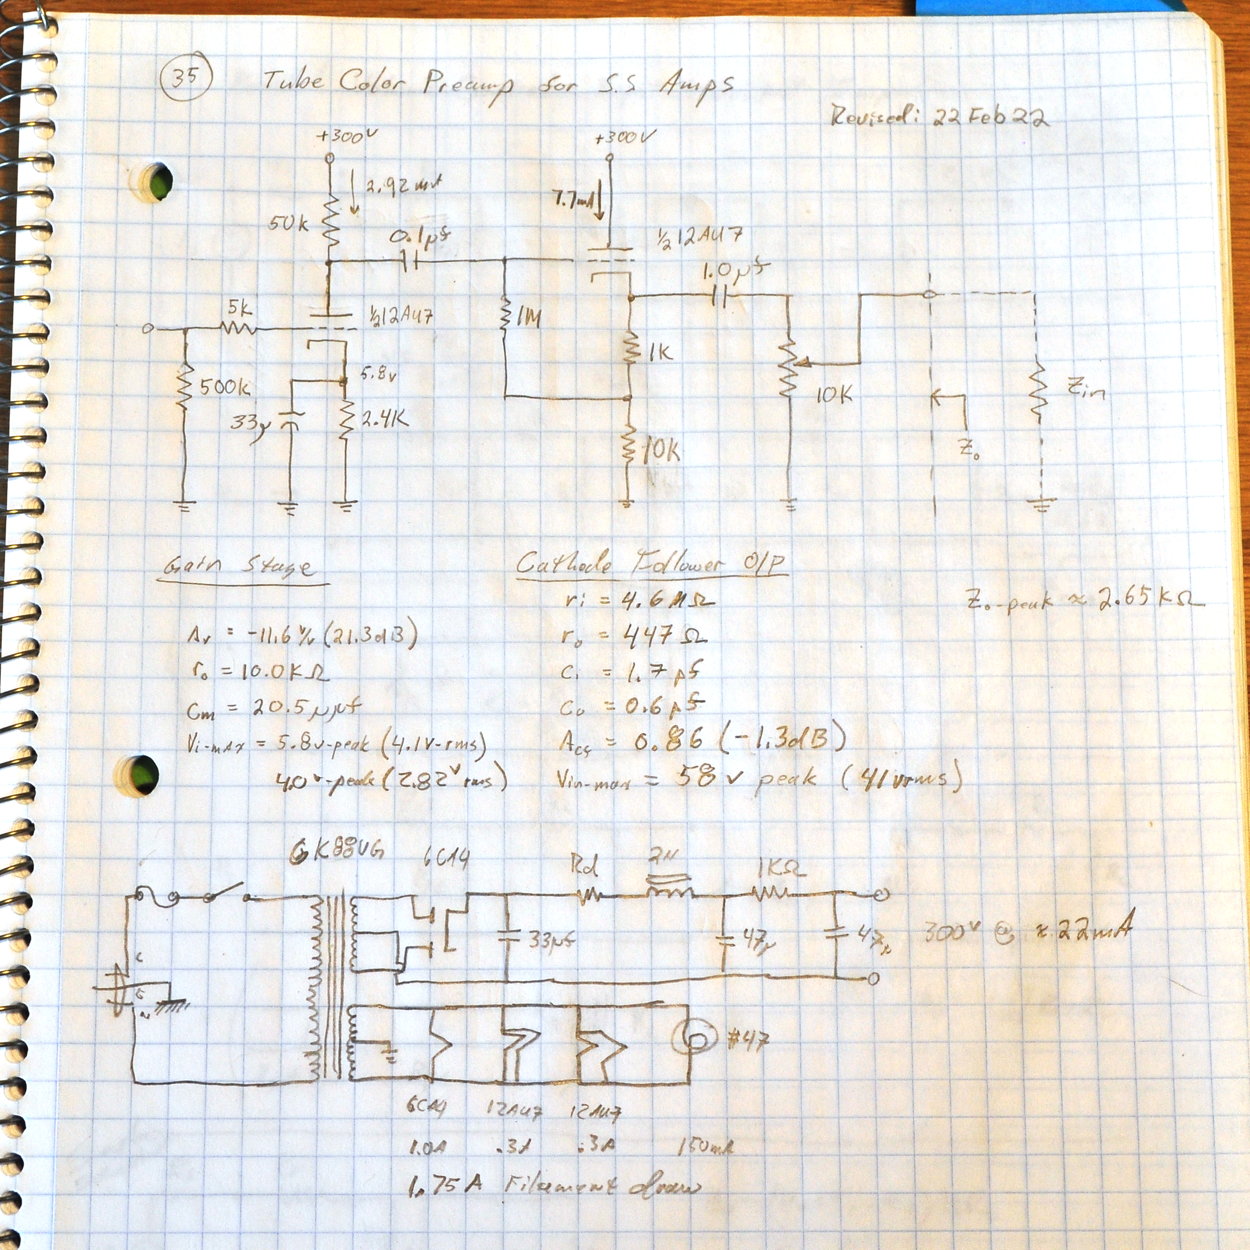 35 Tube Color Preamp for S.S Amps
Revised: 22 Feb 22
+300V +300V
2.92 mA 7.7mA
50K 0.1µf ½12AU7
1.0µf
5K ½12AU7 1M
5.8v 1K
500K 10K Zin
33µ 2.4K 10K Zo
Gain Stage Cathode Follower O/P
ri = 4.6MΩ Zo-peak ≈ 2.65KΩ
Av = -11.6 v/v (21.3dB) ro = 447Ω
ro = 10.0KΩ Ci = 1.7pf
Cm = 20.5µµf Co = 0.6pf
Vi-max = 5.8v-peak (4.1v-rms) Acf = 0.86 (-1.3dB)
4.0v-peak (2.82v rms) Vin-max = 58v peak (41vrms)
6K88VG 6CA4 Rd 2H 1KΩ
33µf 47µ 47µ 300V @ ≈ 22mA
#47
6CA4 12AU7 12AU7
1.0A .3A .3A 150mA
1.75A Filament draw